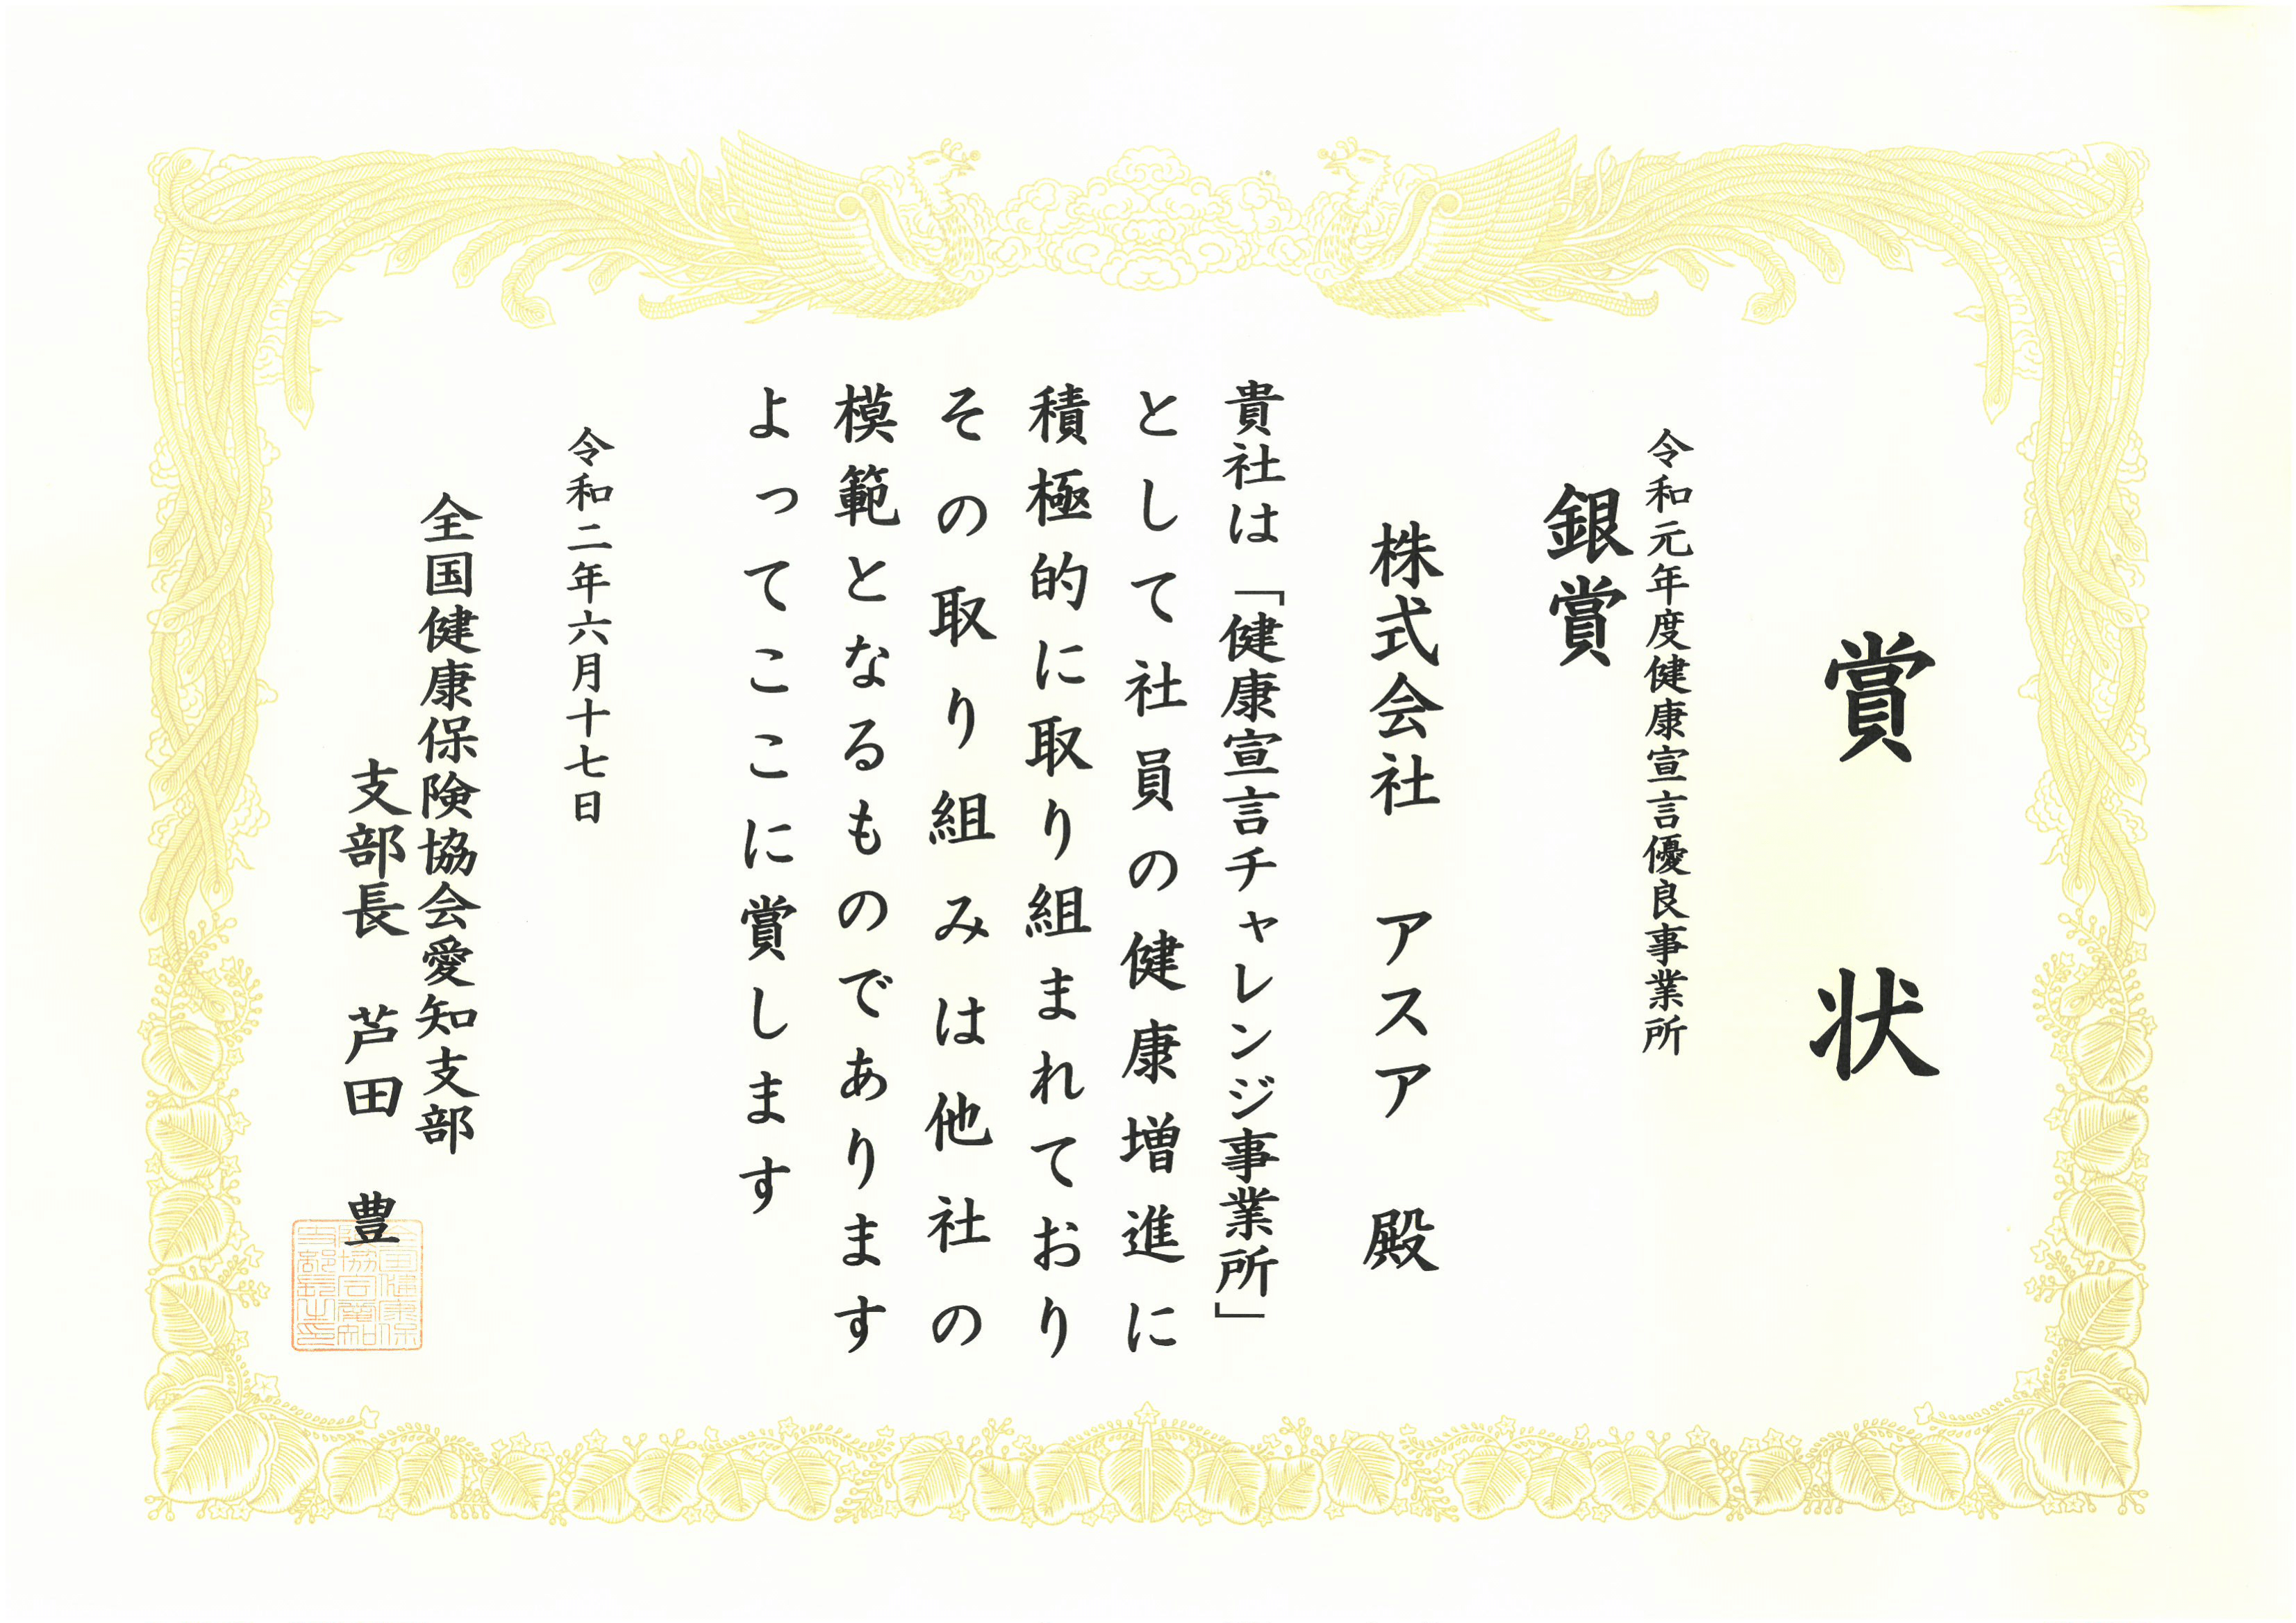 賞状
令和元年度健康宣言優良事業所
銀賞
株式会社 アスア 殿
貴社は「健康宣言チャレンジ事業所」
として社員の健康増進に
積極的に取り組まれており
その取り組みは他社の
模範となるものであります
よってここに賞します
令和二年六月十七日
全国健康保険協会愛知支部
支部長 芦田 豊
全国健康保
険協会愛知
支部長之印